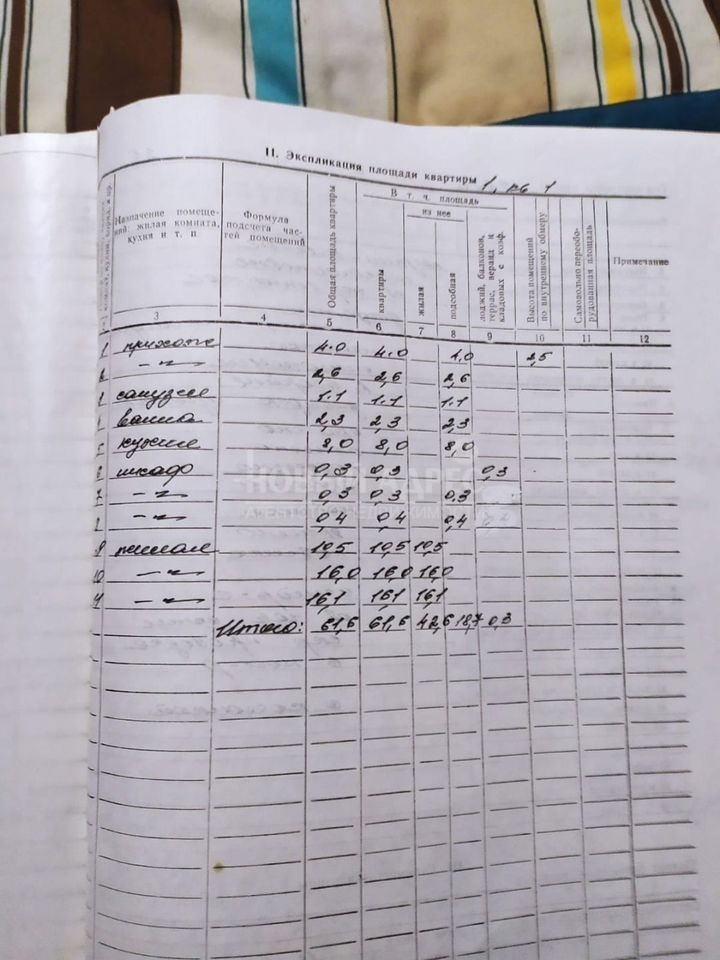 II. Экспликация площади квартиры
Назначение помеще-
ний: жилая комната,
кухня и т. п.
Формула
подсчета час-
тей помещений
Общая площадь квартиры
В т. ч. площадь
из нее
квартиры
жилая
подсобная
лоджий, балконов,
террас, веранд и
кладовых с коэф.
Высота помещений
по внутреннему обмеру
Самовольно переобо-
рудованная площадь
Примечание
3 4 5 6 7 8 9 10 11 12
4.0 4.0 2,5
2,6 2,6 2,6
1.1 1.1 1.1
4 ванна 2,3 2,3 2,3
5 кухня 8,0 8,0 8,0
шкаф 0,3 0,3 0,3
7 -"- 0,3 0,3 0,3
-"- 0,4 0,4 0,4
9 10,5 10,5 10,5
10 -"- 16,0 16,0 16,0
-"- 16,1 16,1 16,1
Итого: 61,6 61,6 42,6 18,7 0,3
НОВЫЙ АДРЕС